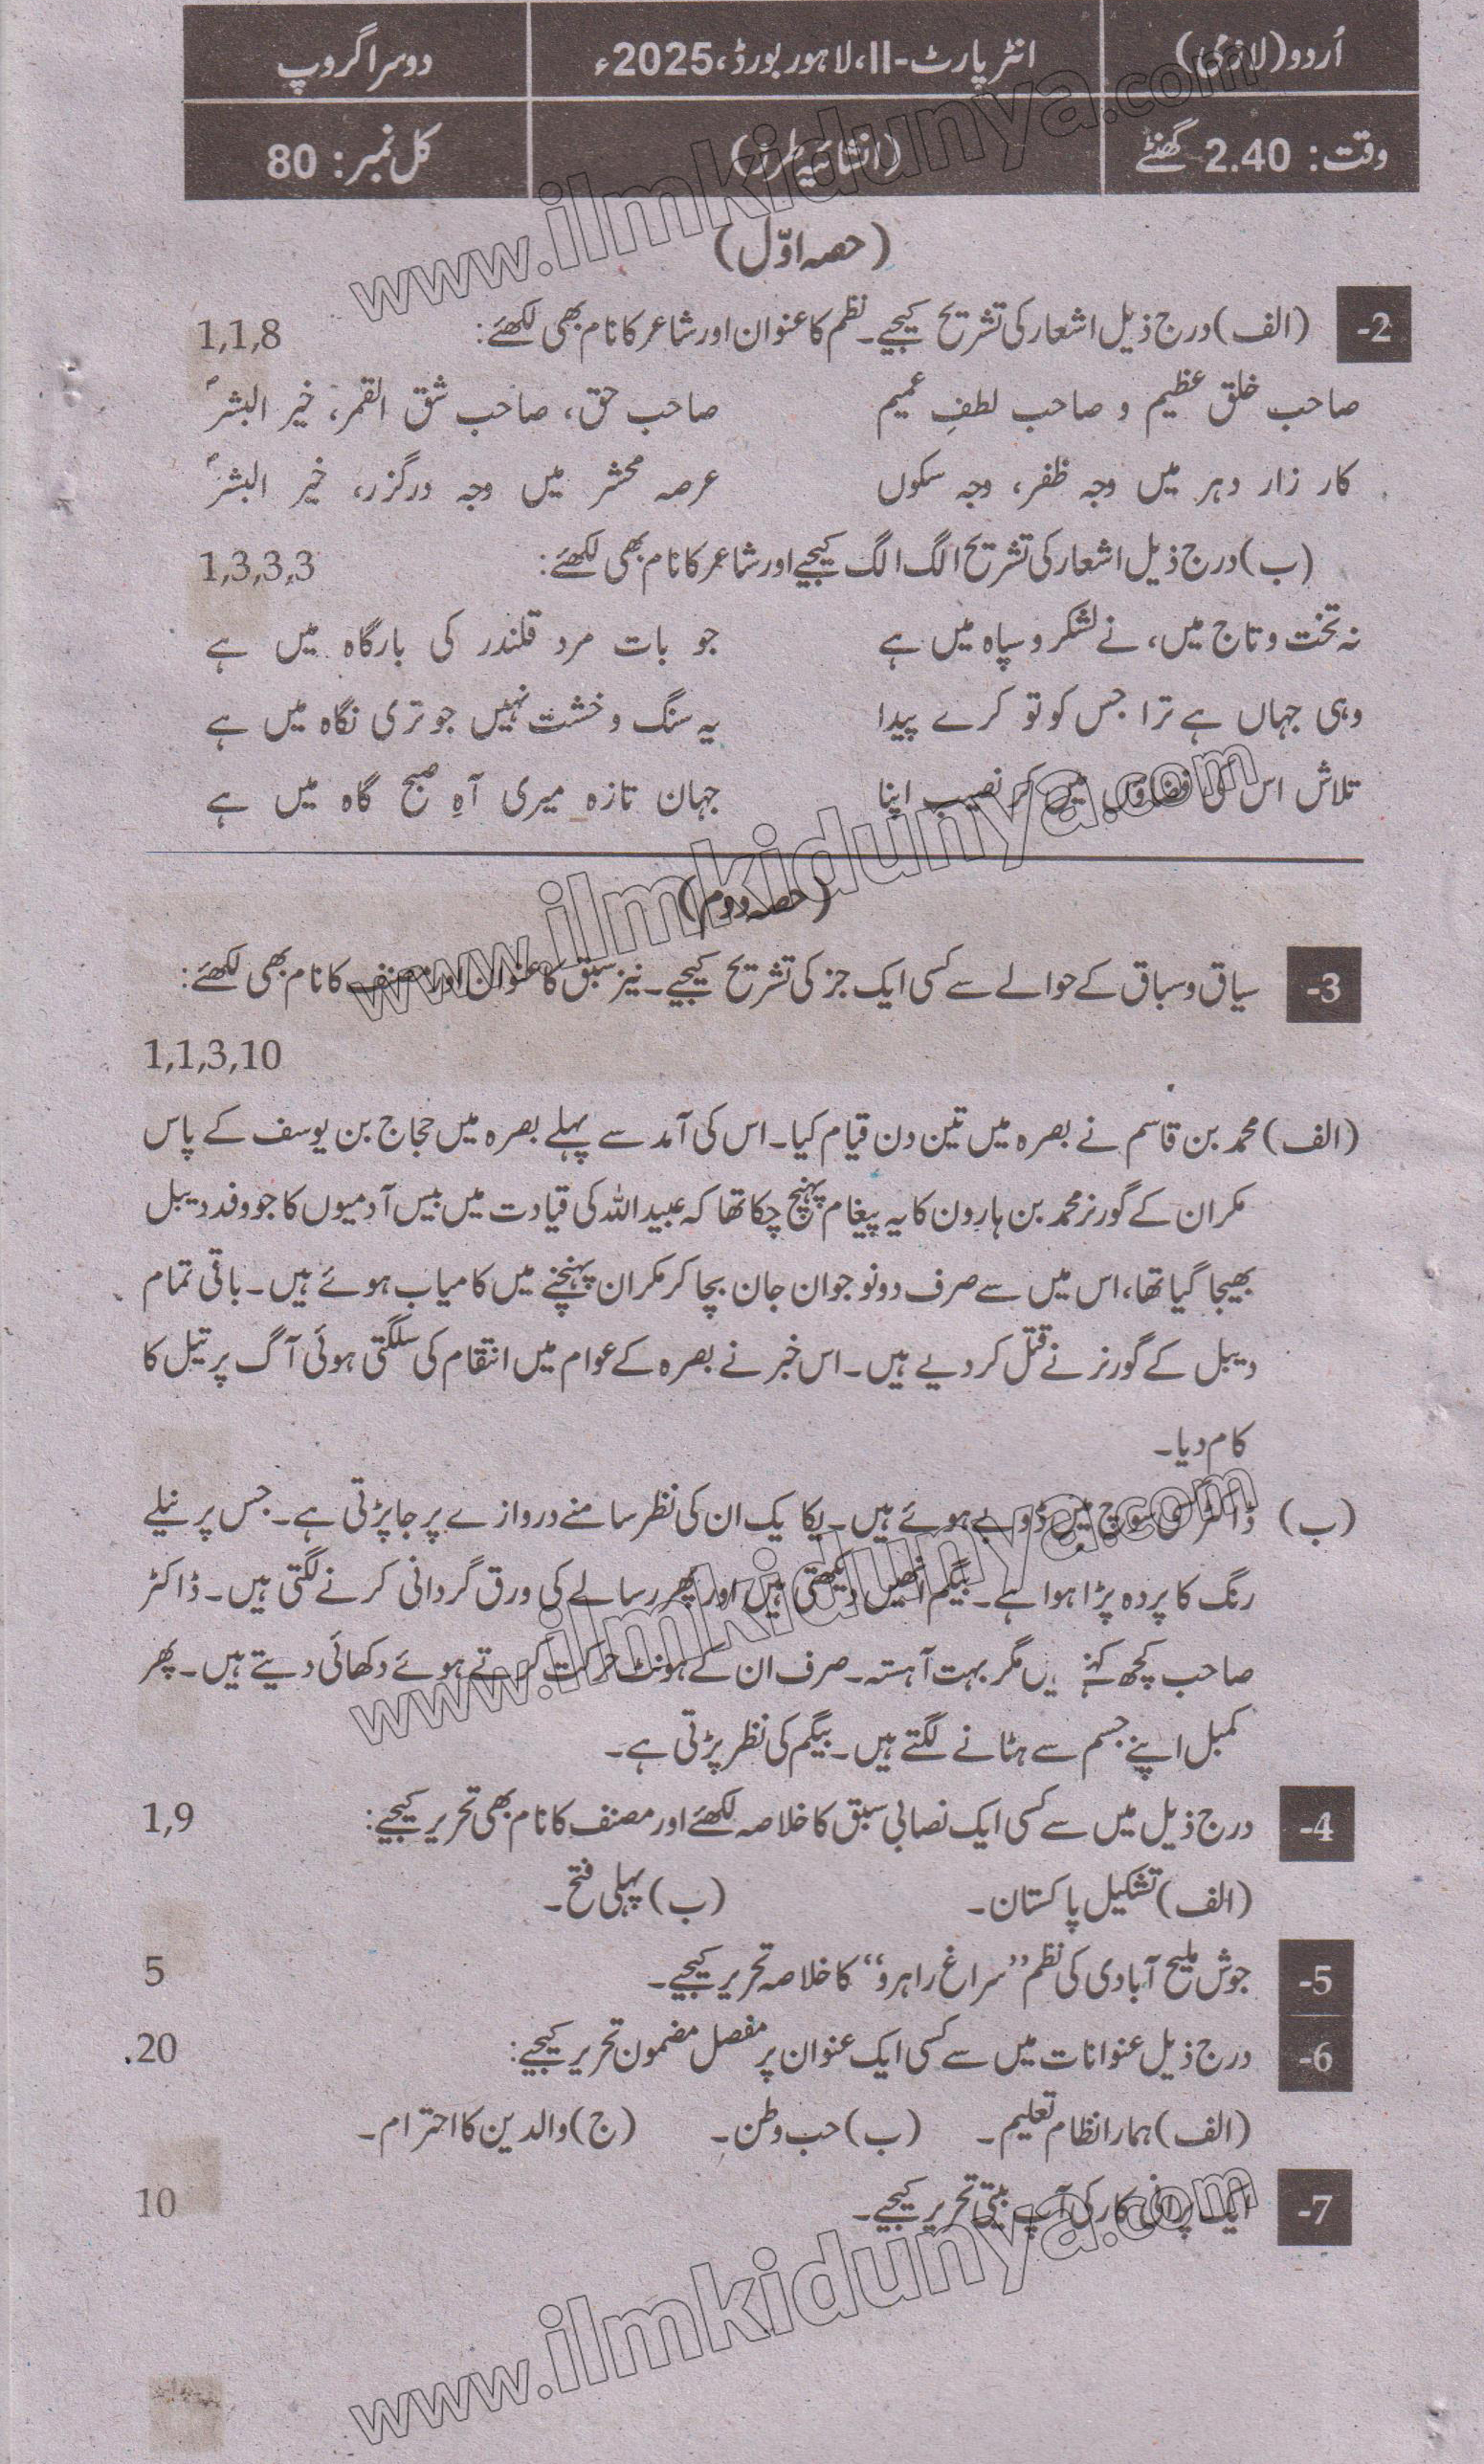 اُردو (لازمی) انٹر پارٹ-II، لاہور بورڈ، 2025ء دوسرا گروپ
وقت: 2.40 گھنٹے (انشائیہ طرز) کل نمبر: 80
(حصہ اوّل)
2- (الف) درج ذیل اشعار کی تشریح کیجیے۔ نظم کا عنوان اور شاعر کا نام بھی لکھئے: 1,1,8
صاحب خلق عظیم و صاحب لطفِ عمیم صاحب حق، صاحب شق القمر، خیر البشرؐ
کار زار دہر میں وجہ ظفر، وجہ سکوں عرصہ محشر میں وجہ درگزر، خیر البشرؐ
(ب) درج ذیل اشعار کی تشریح الگ الگ کیجیے اور شاعر کا نام بھی لکھئے: 1,3,3,3
نہ تخت و تاج میں، نے لشکر و سپاہ میں ہے جو بات مرد قلندر کی بارگاہ میں ہے
وہی جہاں ہے ترا جس کو تو کرے پیدا یہ سنگ و خشت نہیں جو تری نگاہ میں ہے
تلاش اس کی فضاؤں میں کر نصیب اپنا جہان تازہ میری آہِ صبح گاہ میں ہے
(حصہ دوم)
3- سیاق و سباق کے حوالے سے کسی ایک جز کی تشریح کیجیے۔ نیز سبق کا عنوان اور مصنف کا نام بھی لکھئے:
1,1,3,10
(الف) محمد بن قاسم نے بصرہ میں تین دن قیام کیا۔ اس کی آمد سے پہلے بصرہ میں حجاج بن یوسف کے پاس
مکران کے گورنر محمد بن ہارون کا یہ پیغام پہنچ چکا تھا کہ عبید اللہ کی قیادت میں بیس آدمیوں کا جو وفد دیبل
بھیجا گیا تھا، اس میں سے صرف دو نوجوان جان بچا کر مکران پہنچنے میں کامیاب ہوئے ہیں۔ باقی تمام
دیبل کے گورنر نے قتل کر دیے ہیں۔ اس خبر نے بصرہ کے عوام میں انتقام کی سلگتی ہوئی آگ پر تیل کا
کام دیا۔
(ب) ڈاکٹر سوچ میں ڈوبے ہوئے ہیں۔ یکایک ان کی نظر سامنے دروازے پر جا پڑتی ہے۔ جس پر نیلے
رنگ کا پردہ پڑا ہوا ہے۔ بیگم انھیں دیکھتی ہیں اور پھر رسالے کی ورق گردانی کرنے لگتی ہیں۔ ڈاکٹر
صاحب کچھ مگر بہت آہستہ۔ صرف ان کے ہونٹ حرکت کرتے ہوئے دکھائی دیتے ہیں۔ پھر
کمبل اپنے جسم سے ہٹانے لگتے ہیں۔ بیگم کی نظر پڑتی ہے۔
4- درج ذیل میں سے کسی ایک نصابی سبق کا خلاصہ لکھئے اور مصنف کا نام بھی تحریر کیجیے: 1,9
(الف) تشکیل پاکستان۔ (ب) پہلی فتح۔
5- جوش ملیح آبادی کی نظم ”سراغ راہرو“ کا خلاصہ تحریر کیجیے۔ 5
6- درج ذیل عنوانات میں سے کسی ایک عنوان پر مفصل مضمون تحریر کیجیے: 20
(الف) ہمارا نظام تعلیم۔ (ب) حب وطن۔ (ج) والدین کا احترام۔
7- ایک پرانی کار کی آپ بیتی تحریر کیجیے۔ 10
www.ilmkidunya.com
www.ilmkidunya.com
www.ilmkidunya.com
www.ilmkidunya.com